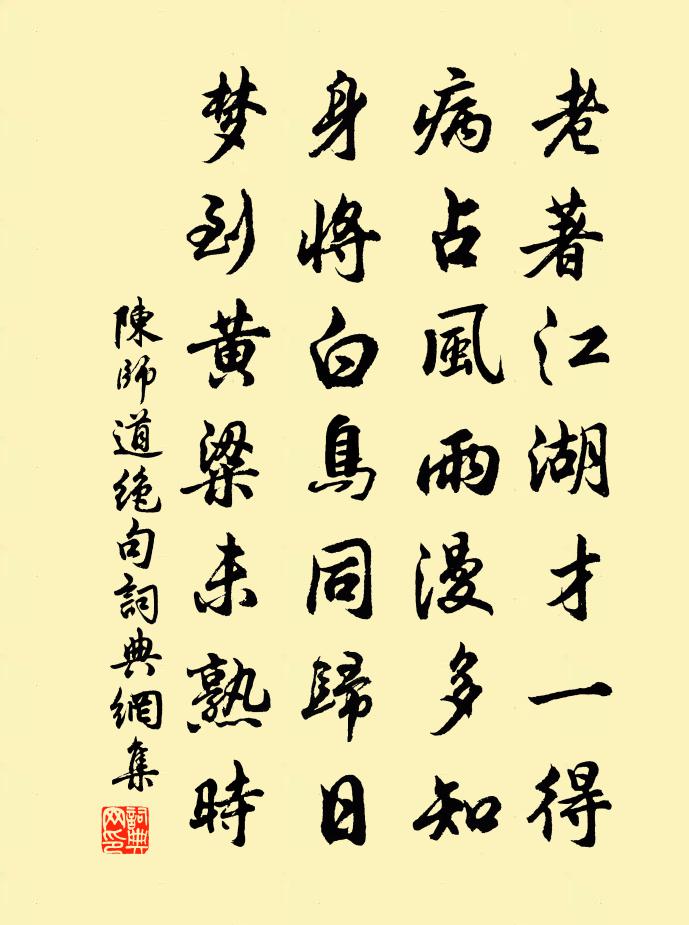 老著江湖才一得
病占風雨漫多知
身將白鳥同歸日
梦到黄粱未熟時
陳師道絶句詞典網集
詞典网印